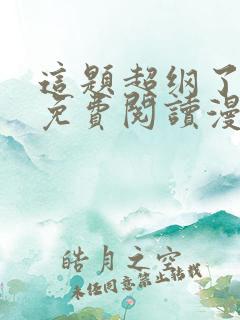 這題超纲了
免費閱讀漫
皓月之空
未经同意禁止转载